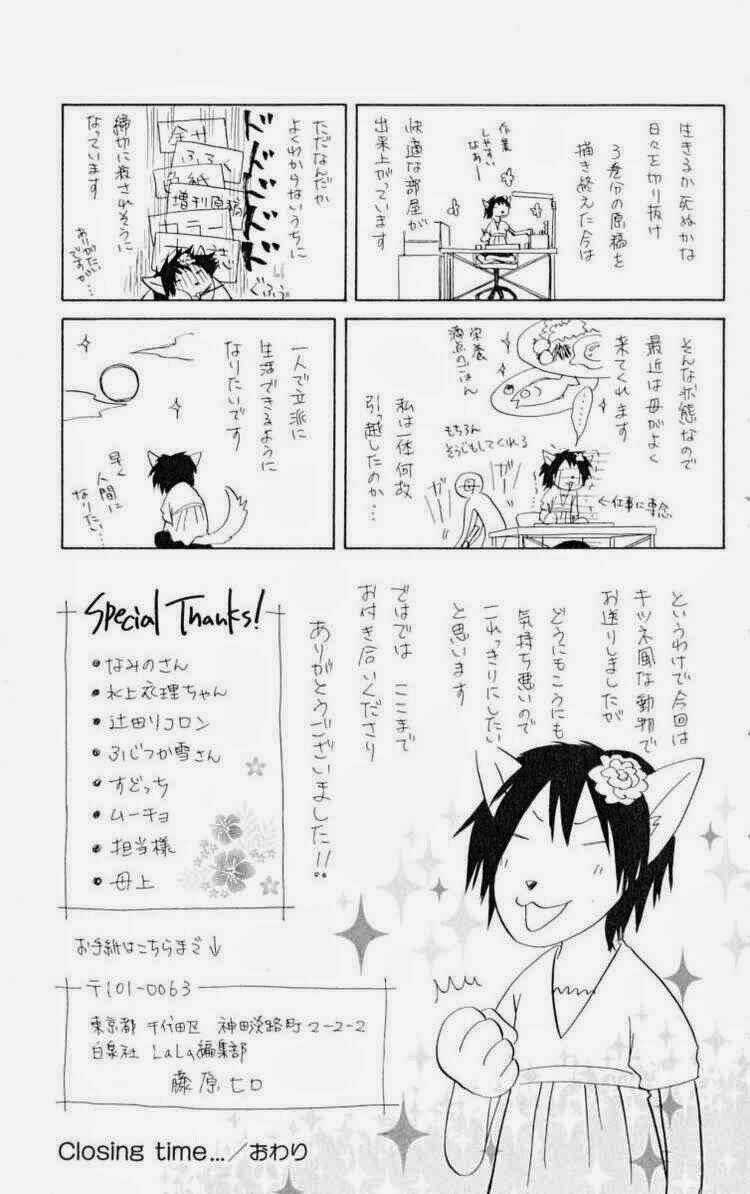 生きるか死ぬかな
日々を切り抜け
3巻分の原稿を
描き終えた今は
快適な部屋が
出来上がっています
作業
しやすい
なぁー
ただなんだか
よくわからないうちに
ドドドドド
全サ
ふろく
色紙
増刊原稿
カラー
ぐふっ
締切に殺されそうに
なっています
ありがたい
ですが…
そんな状態なので
最近は母がよく
来てくれます
栄養
満点のごはん
……
←仕事に専念
もちろん
そうじもしてくれる
母
ガーガー
私は一体何故
引っ越したのか…
一人で立派に
生活できるように
なりたいです
早く
人間に
なりたい…
というわけで今回は
キツネ風な動物で
お送りしましたが
どうにもこうにも
気持ち悪いので
これっきりにしたい
と思います
ではでは ここまで
お付き合いくださり
ありがとうございました!!
Special Thanks!
・なみのさん
・水上衣理ちゃん
・辻田リコロン
・ふじつか雪さん
・すどっち
・ムーチョ
・担当様
・母上
お手紙はこちらまで↓
〒101-0063
東京都 千代田区 神田淡路町2-2-2
白泉社 LaLa編集部
藤原ヒロ
Closing time…/おわり